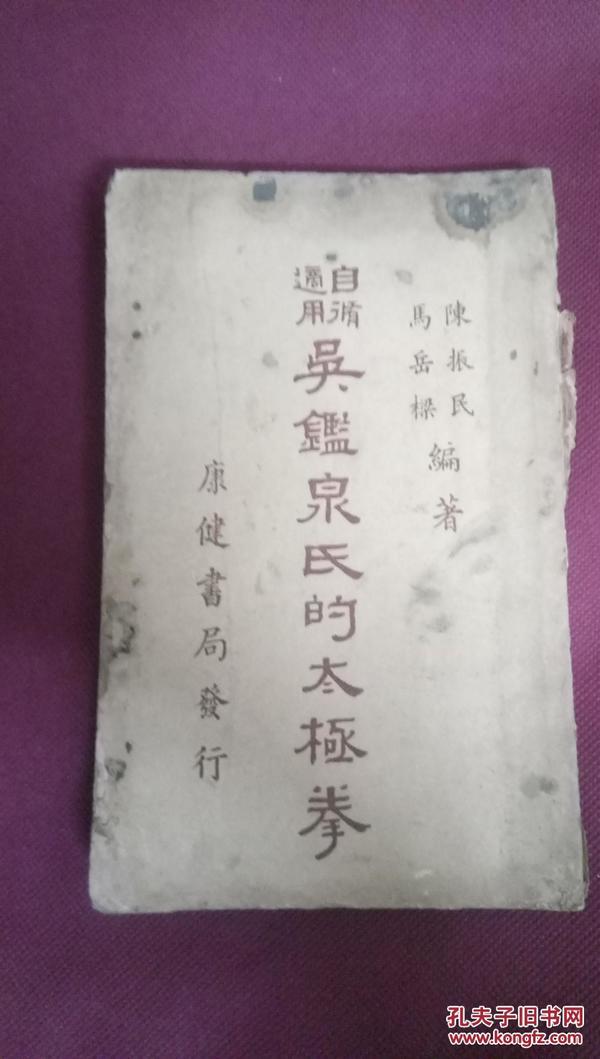 陳振民
馬岳樑
編著
自脩
適用
吳鑑泉氏的太極拳
康健書局發行
孔夫子旧书网
www.kongfz.com